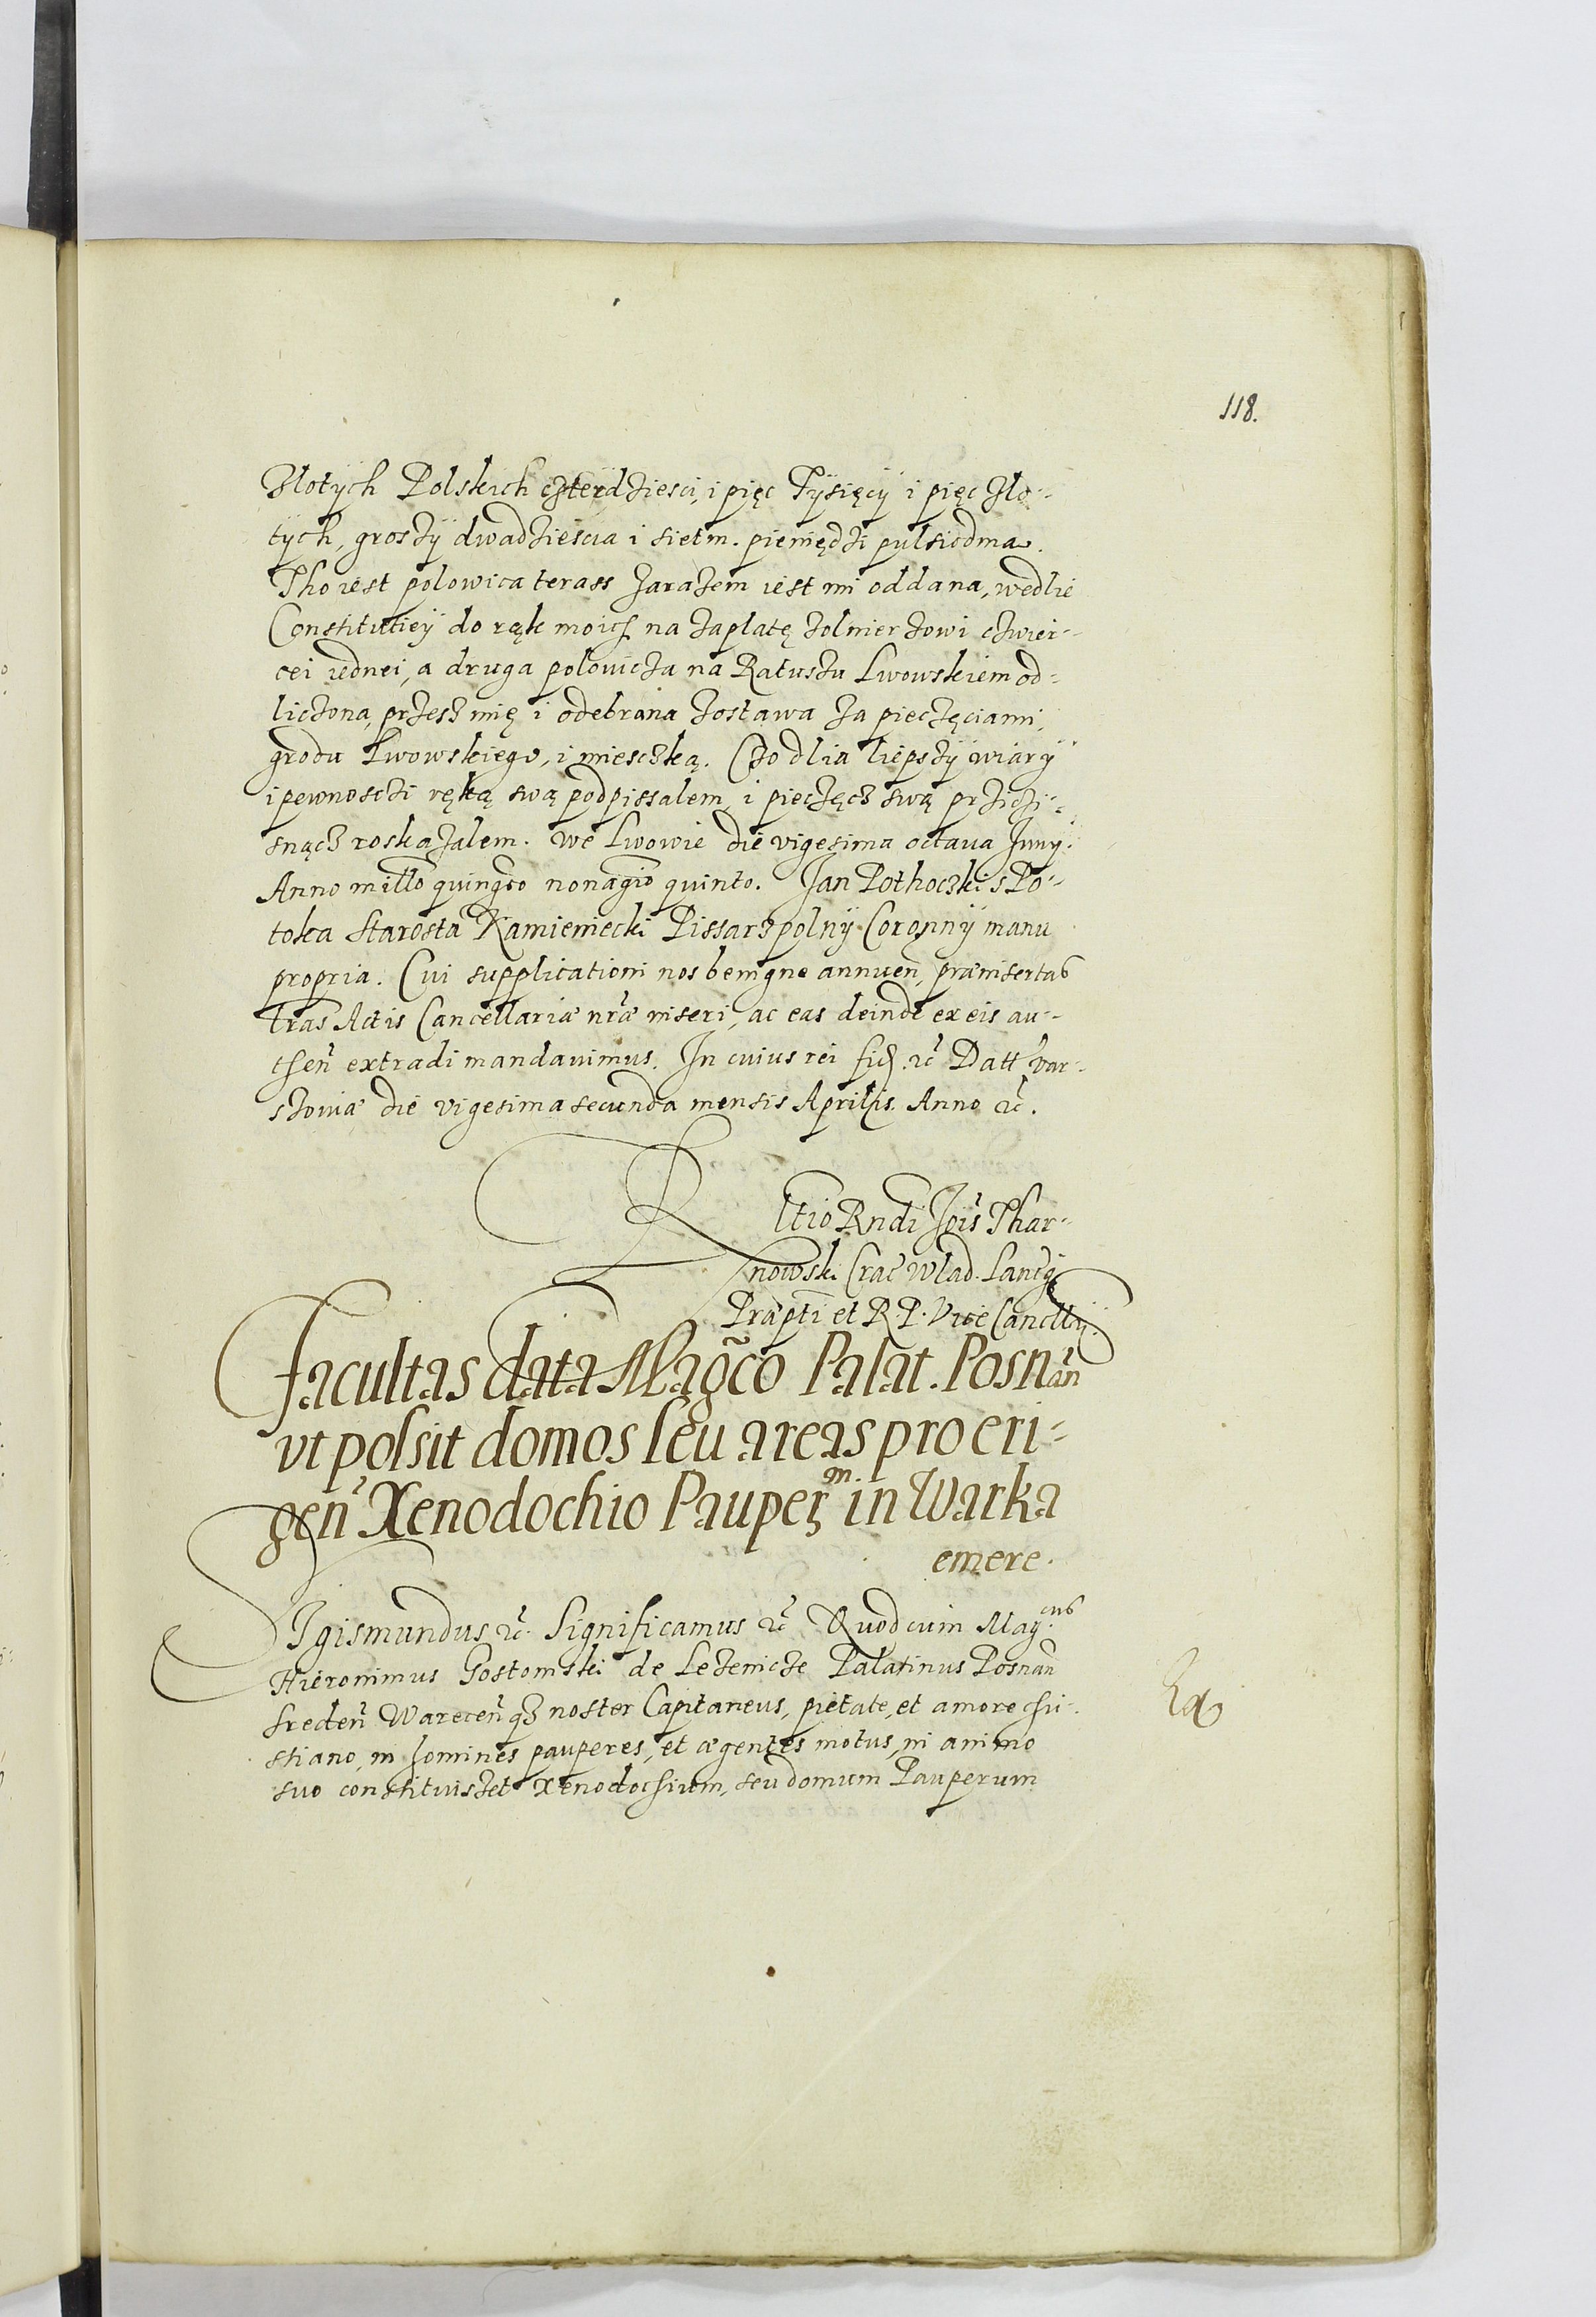 118.
Złotych Polskich czterdziesci, i pięc Tysięcy i pięc zło-
tych, groszy dwadziescia i sietm. pieniędzi pulsiodma.
Tho iest polowica terass zarazem iest mi oddana, wedlie
Constitutiey do ręk moich na zaplatę zolnierzowi czwier-
cei iednei, a druga polowicza na Ratuszu Lwowskiem od-
liczona, przesz mię i odebrana zostawa za pieczęciami,
grodu Lwowskiego, i miesczką. Czo dlia liepszy wiary
i pewnosczi ręką swą podpissalem, i pieczęcz swą prziczi-
snącz roskazalem. We Lwowie die vigesima octaua Juny.
Anno millo quingto nonagio quinto. Jan Pothoczki s Po-
toka Starosta Kamieniecki Pissarz polny Coronny manu
propria. Cui supplicationi nos benigne annuen, præinsertas
lras Actis Cancellariæ nræ inseri, ac eas deinde ex eis au-
then extradi mandauimus. In cuius rei fid. &c Datt Var-
szouiæ die vigesima secunda mensis Aprilis. Anno &c.
Rltio Rndi Jois Thar-
nowski Crac Wlad. Lancg
Præpti et R. P. Vice Cancllrij.
Facultas data Mag̃co Palat. Posnan
vt possit domos seu areas pro eri-
gen Xenodochio Pauper in Warka
emere.
SIgismundus &c. Significamus &c Quod cum Mag.cus
Hieronimus Gostomski de Lezenicze Palatinus Posnan
Sreden Warecen qz noster Capitaneus, pietate, et amore chri-
stiano, in homines pauperes, et ægentes motus, in animo
suo constituiszet Xenodochium, seu domum Pauperum